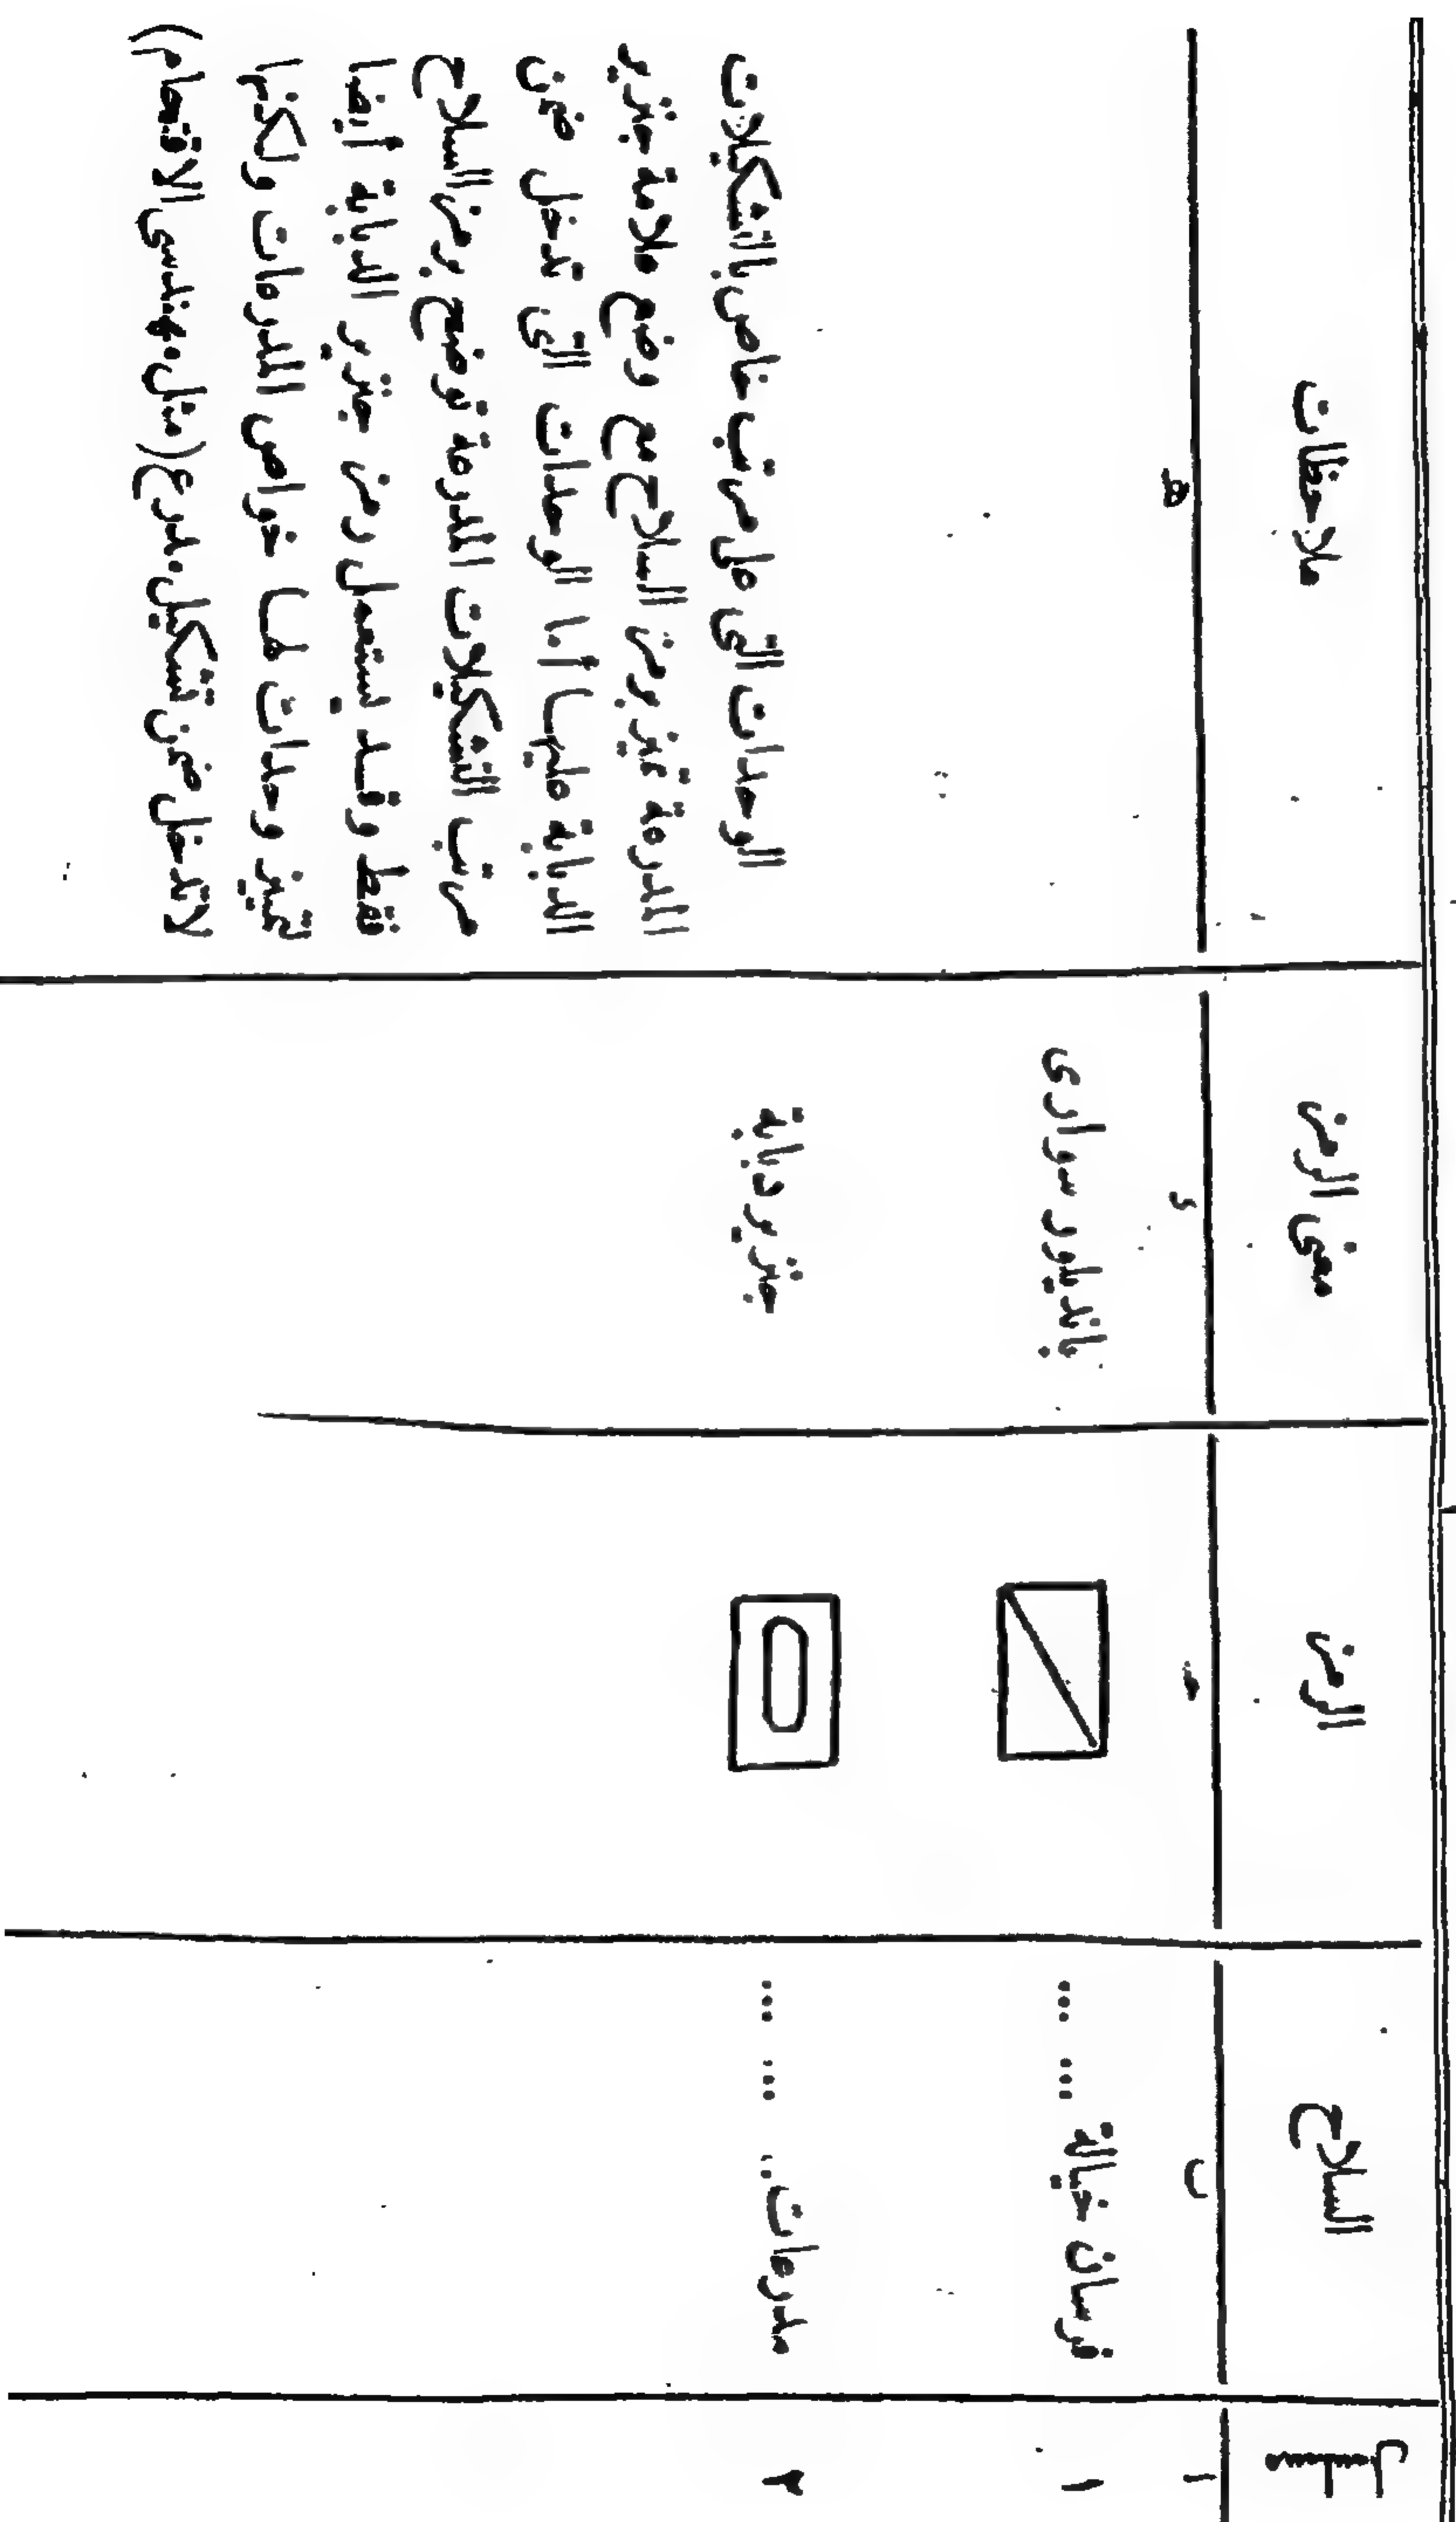 مسلسل السلاح الرمز معنى الرمز ملاحظات
ا ب ء د هـ
١ فرسان خيالة ... ... باندیلور سواری
٢ مدرعات .. ... ... جنزير دبابة
الوحدات التى على مرتب خاص بالتشكيلات
المدرعة تميز برمز السلاح مع وضع علامة جنزير
الدبابة عليها أما الوحدات التى تدخل ضمن
مرتب التشكيلات المدرعة توضح برمز السلاح
فقط وقد يستعمل رمز جنزير الدبابة أيضا
لتمييز وحدات لها خواص المدرعات ولكنها
لا تدخل ضمن تشكيل مدرع (مثل مهندسى الاقتحام)